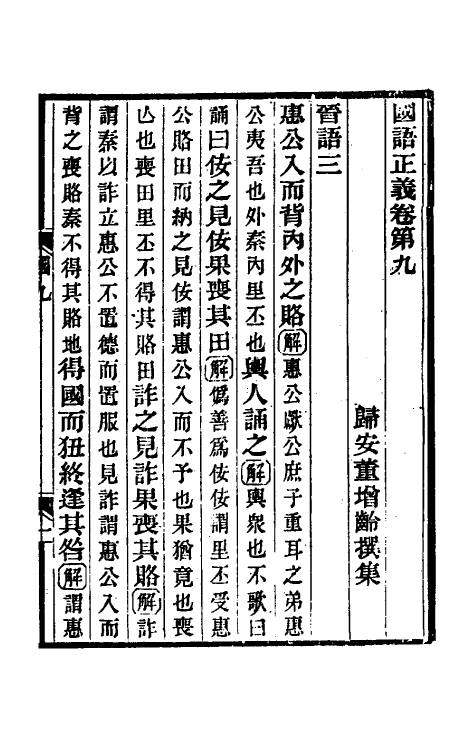 國語正義卷第九
歸安董增齡撰集
晉語三
惠公入而背內外之賂解惠公獻公庶子重耳之弟惠
公夷吾也外秦內里丕也輿人誦之解輿眾也不歌曰
誦曰佞之見佞果喪其田解僞善爲佞佞謂里丕受惠
公賂田而納之見佞謂惠公入而不予也果猶竟也喪
亾也喪田里丕不得其賂田詐之見詐果喪其賂解詐
謂秦以詐立惠公不置德而置服也見詐謂惠公入而
背之喪賂秦不得其賂地得國而狃終逢其咎解謂惠
國九
一